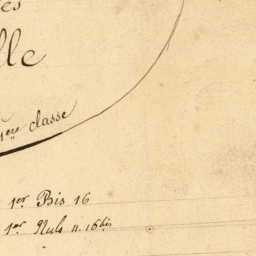 es
lle
1ère classe
1er Bis 16
1er Nulo n. 16bis